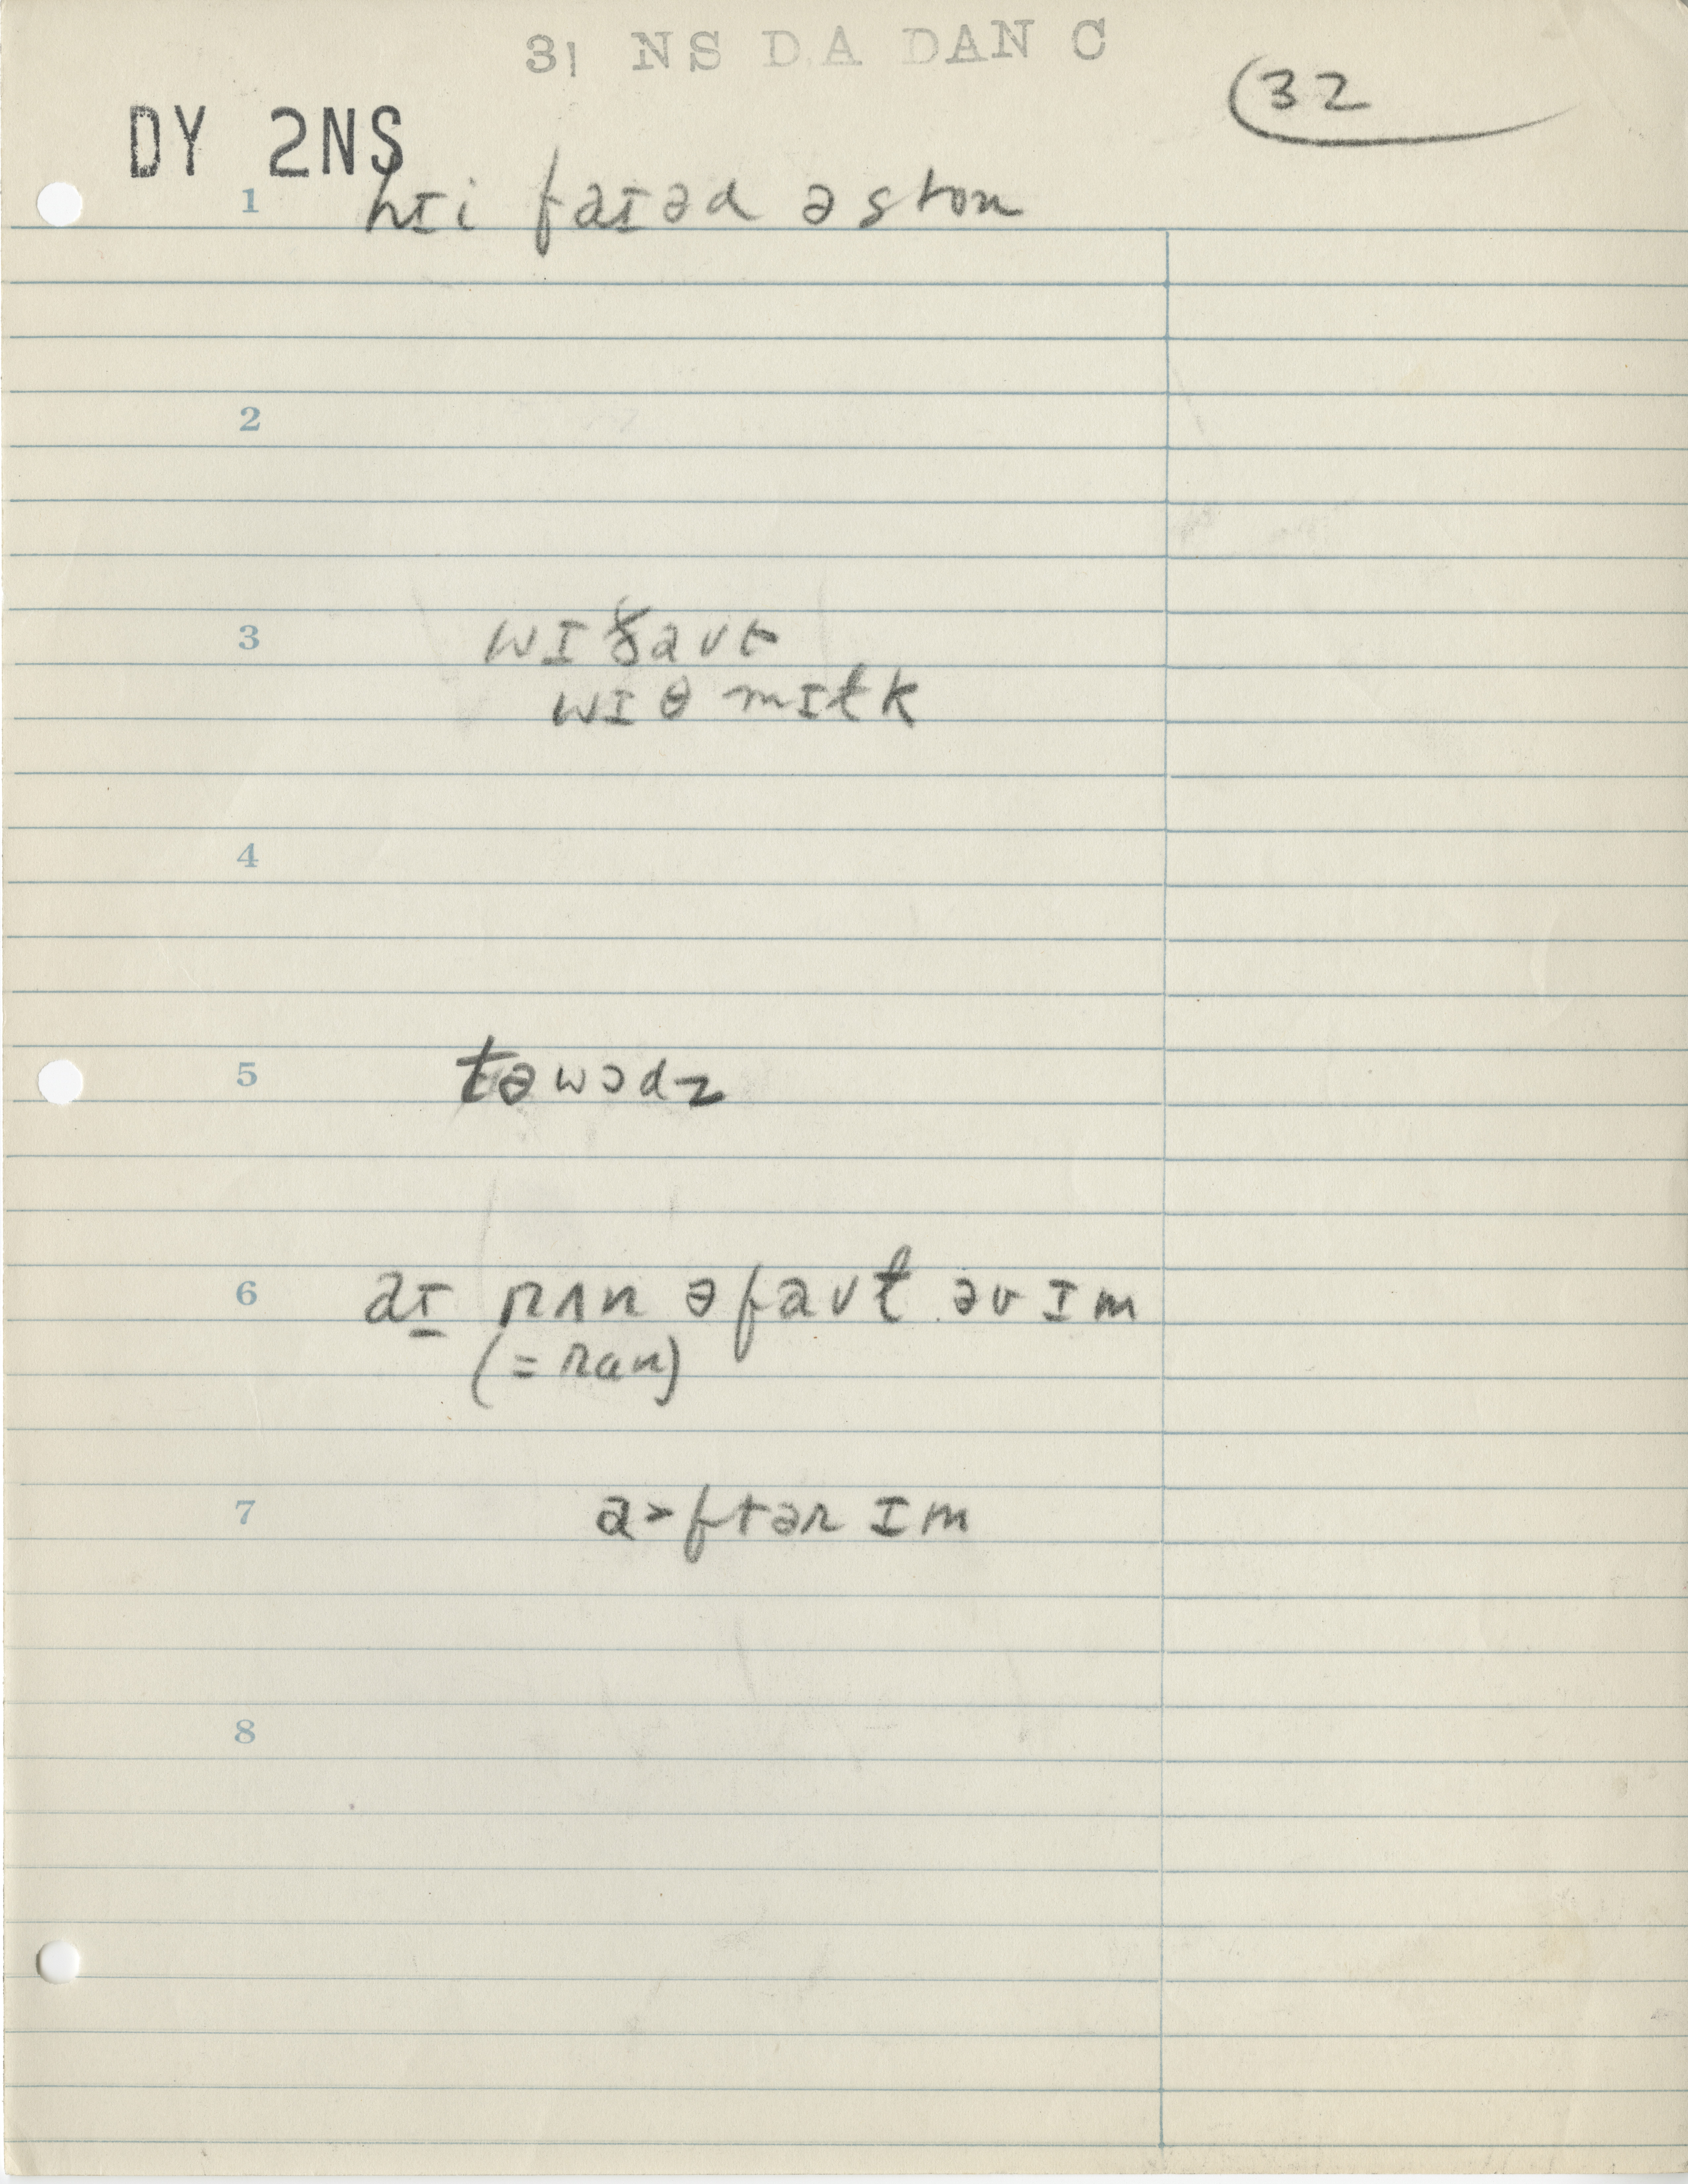 31 NS DA DAN C
32
DY 2NS
1 hɪi faɪəd ə ston
2
3 wɪðaʊt
wɪθ mɪtk
4
5 təwɔdz
6 aɪ rʌn əfaʊt əv ɪm
(= ran)
7 a>ftər ɪm
8